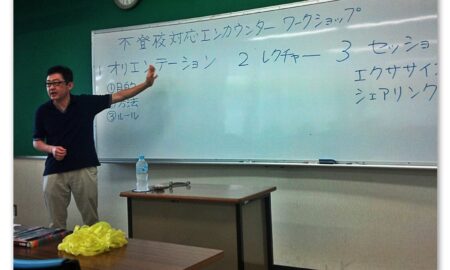 不登校対応エンカウンター ワークショップ
1 オリエンテーション 2 レクチャー 3 セッショ
①目的
②方法
③ルール
エクササイズ
シェアリング